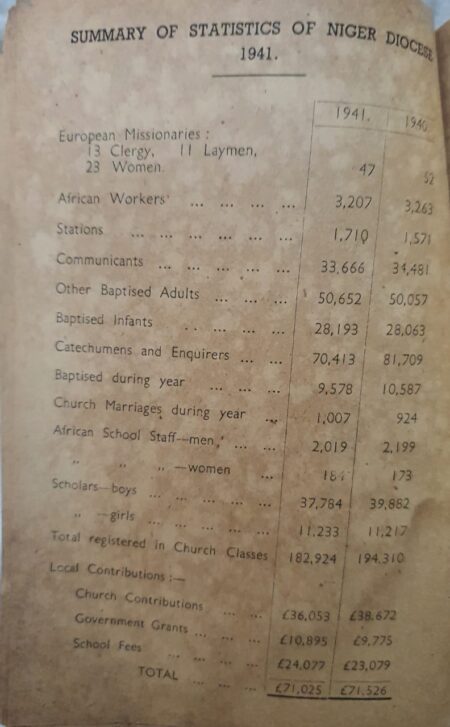 SUMMARY OF STATISTICS OF NIGER DIOCESE
1941.
1941. 1940.
European Missionaries :
13 Clergy, 11 Laymen,
23 Women. 47 52
African Workers ... ... ... ... 3,207 3,263
Stations ... ... ... ... ... 1,710 1,571
Communicants ... ... ... ... 33,666 34,481
Other Baptised Adults ... ... ... 50,652 50,057
Baptised Infants ... ... ... 28,193 28,063
Catechumens and Enquirers ... ... 70,413 81,709
Baptised during year ... ... ... 9,578 10,587
Church Marriages during year ... 1,007 924
African School Staff—men, ... ... 2,019 2,199
„ „ „ —women ... 173
Scholars—boys ... ... ... ... ... 37,784 39,882
„ —girls ... ... ... ... ... 11,233 11,217
Total registered in Church Classes 182,924 194,310
Local Contributions :—
Church Contributions ... ... £36,053 £38,672
Government Grants ... ... ... £10,895 £9,775
School Fees ... ... ... ... £24,077 £23,079
TOTAL ... ... ... £71,025 £71,526